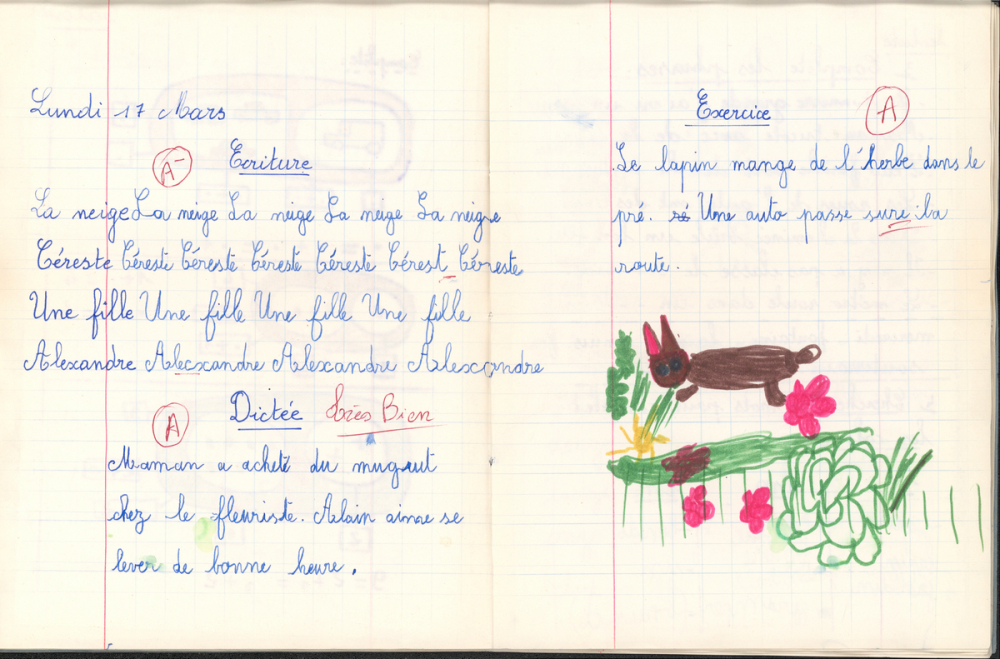 Lundi 17 Mars
A- Ecriture
La neige La neige La neige La neige La neige
Céreste Céreste Céreste Céreste Céreste Cérest Céreste
Une fille Une fille Une fille Une fille
Alexandre Alecxandre Alexandre Alexandre
A Dictée très Bien
Maman a acheté du muguet
chez le fleuriste. Alain aime se
lever de bonne heure.
Exercice A
Le lapin mange de l'herbe dans le
pré. Une auto passe sure la
route.